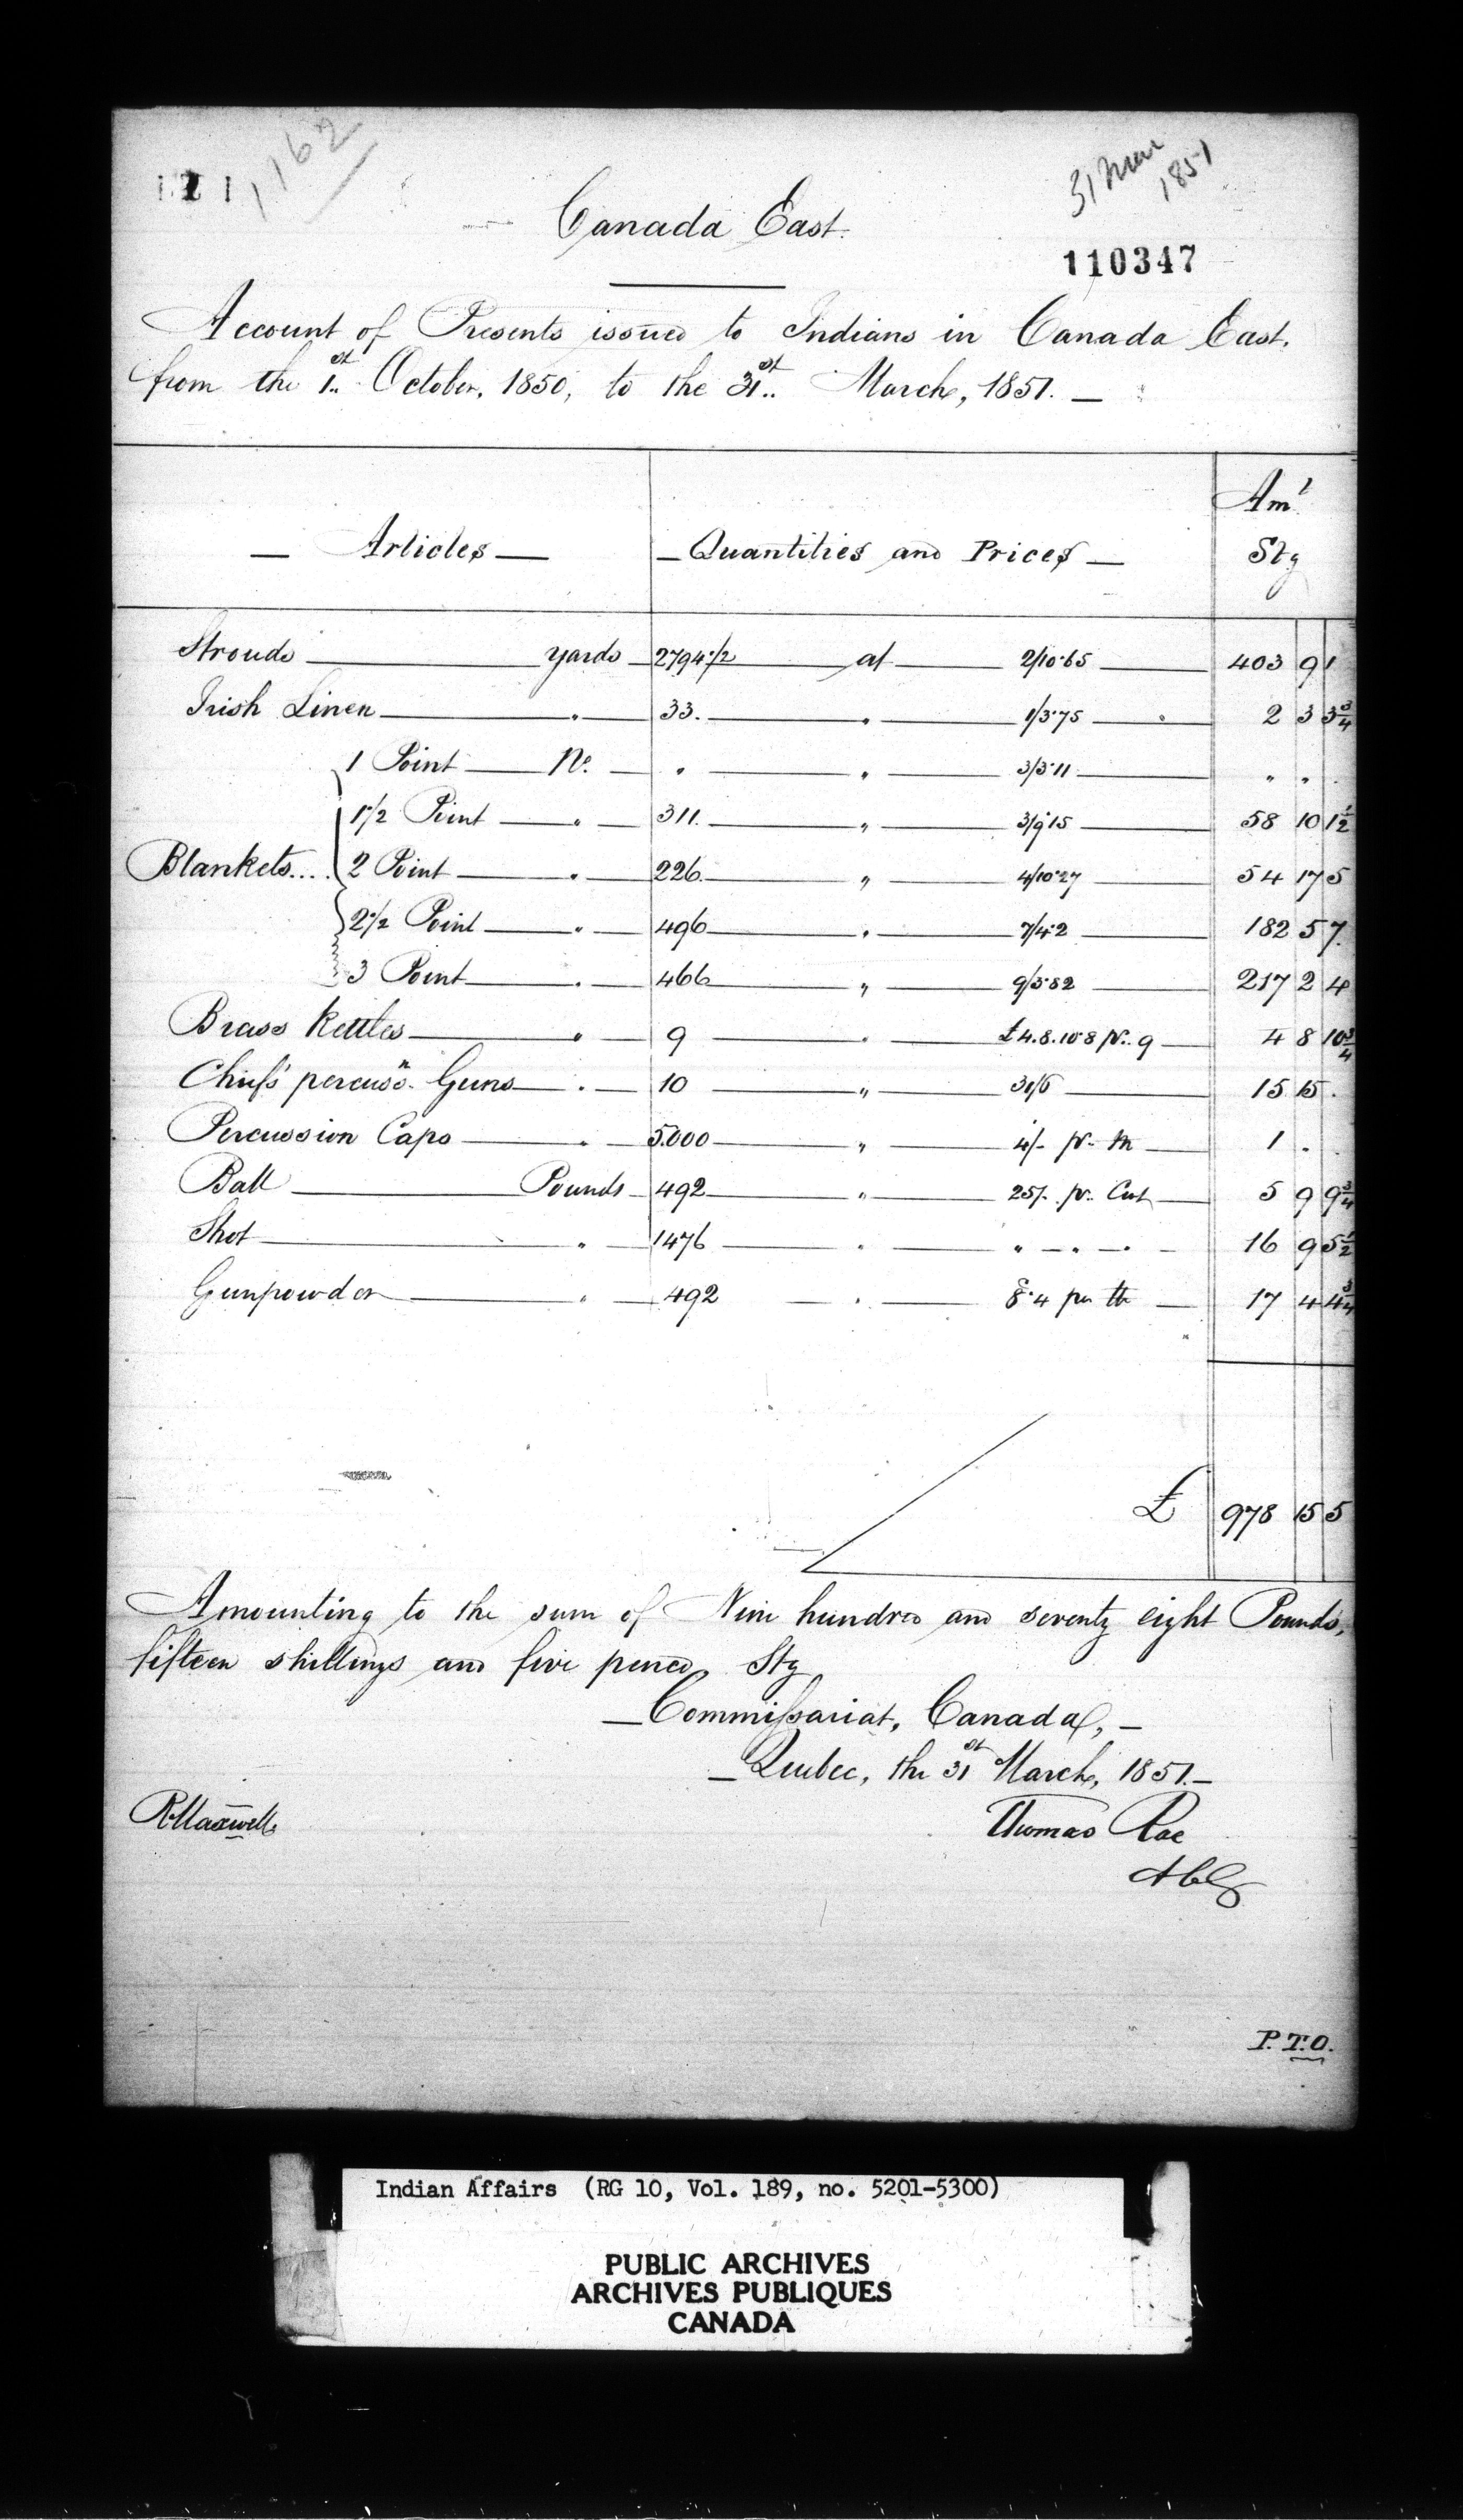 121
1162
31 Mar
1851
Canada East.
110347
Account of Presents issued to Indians in Canada East,
from the 1st October, 1850, to the 31st March, 1851. —
— Articles — — Quantities and Prices — Amt Stg
Strouds yards 2794 1/2 at 2/10.65 403 9 1
Irish Linen " 33. " 1/3.75 2 3 3 3/4
1 Point No. " " 3/3.11 " " .
1 1/2 Point " 311. " 3/9.15 58 10 1 1/2
Blankets.... 2 Point " 226. " 4/10.27 54 17 5
2 1/2 Point " 496 " 7/4.2 182 5 7
3 Point " 466 " 9/3.82 217 2 4
Brass Kettles " 9 " £4.8.10.8 pr. 9 4 8 10 3/4
Chiefs' percussn. Guns " 10 " 31/6 15 15 .
Percussion Caps " 5.000 " 4/- pr. M 1 . .
Ball Pounds 492 " 25/. pr. Cwt 5 9 9 3/4
Shot " 1476 " " — " — " — 16 9 5 1/2
Gunpowder " 492 " 8.4 per lb 17 4 4 3/4
£ 978 15 5
Amounting to the sum of Nine hundred and seventy eight Pounds,
fifteen shillings and five pence, Stg
— Commissariat, Canada, —
— Quebec, the 31st March, 1851. —
R Maxwell
Thomas Rae
ACG
P.T.O.
Indian Affairs (RG 10, Vol. 189, no. 5201-5300)
PUBLIC ARCHIVES
ARCHIVES PUBLIQUES
CANADA